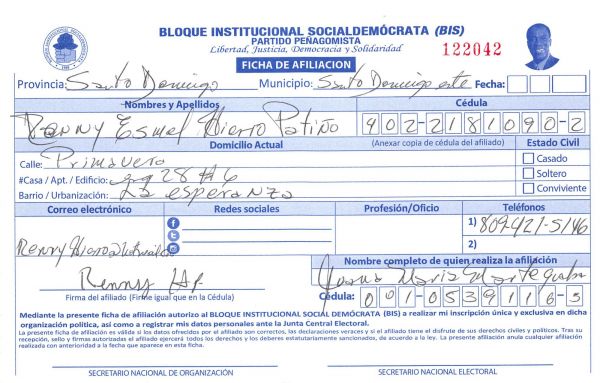 BLOQUE INSTITUCIONAL SOCIALDEMÓCRATA (BIS)
PARTIDO PEÑAGOMISTA
Libertad, Justicia, Democracia y Solidaridad
122042
FICHA DE AFILIACION
Provincia: Santo Domingo Municipio: Santo Domingo este Fecha:
Nombres y Apellidos Cédula
Renny Esmel Hierro Patiño 402-2181090-2
Domicilio Actual (Anexar copia de cédula del afiliado) Estado Civil
Calle: Primavera Casado
#Casa / Apt. / Edificio: 28 # 6 Soltero
Barrio / Urbanización: La esperanza Conviviente
Correo electrónico Redes sociales Profesión/Oficio Teléfonos
1) 809-421-5146
2)
Renny
Nombre completo de quien realiza la afiliación
Renny HP. Juana Maria Marte
Firma del afiliado (Firme igual que en la Cédula) Cédula: 001-0539116-3
Mediante la presente ficha de afiliación autorizo al BLOQUE INSTITUCIONAL SOCIAL DEMÓCRATA (BIS) a realizar mi inscripción única y exclusiva en dicha
organización política, así como a registrar mis datos personales ante la Junta Central Electoral.
La presente ficha de afiliación es válida si los datos ofrecidos por el afiliado son correctos, las declaraciones veraces y si el afiliado tiene el disfrute de sus derechos civiles y políticos. Tras su
recepción, sello y firmas autorizadas el afiliado ejercerá todos los derechos y los deberes estatutariamente sancionados, de acuerdo a la ley. La presente afiliación anula cualquier afiliación
realizada con anterioridad a la fecha que aparece en esta ficha.
SECRETARIO NACIONAL DE ORGANIZACIÓN SECRETARIO NACIONAL ELECTORAL